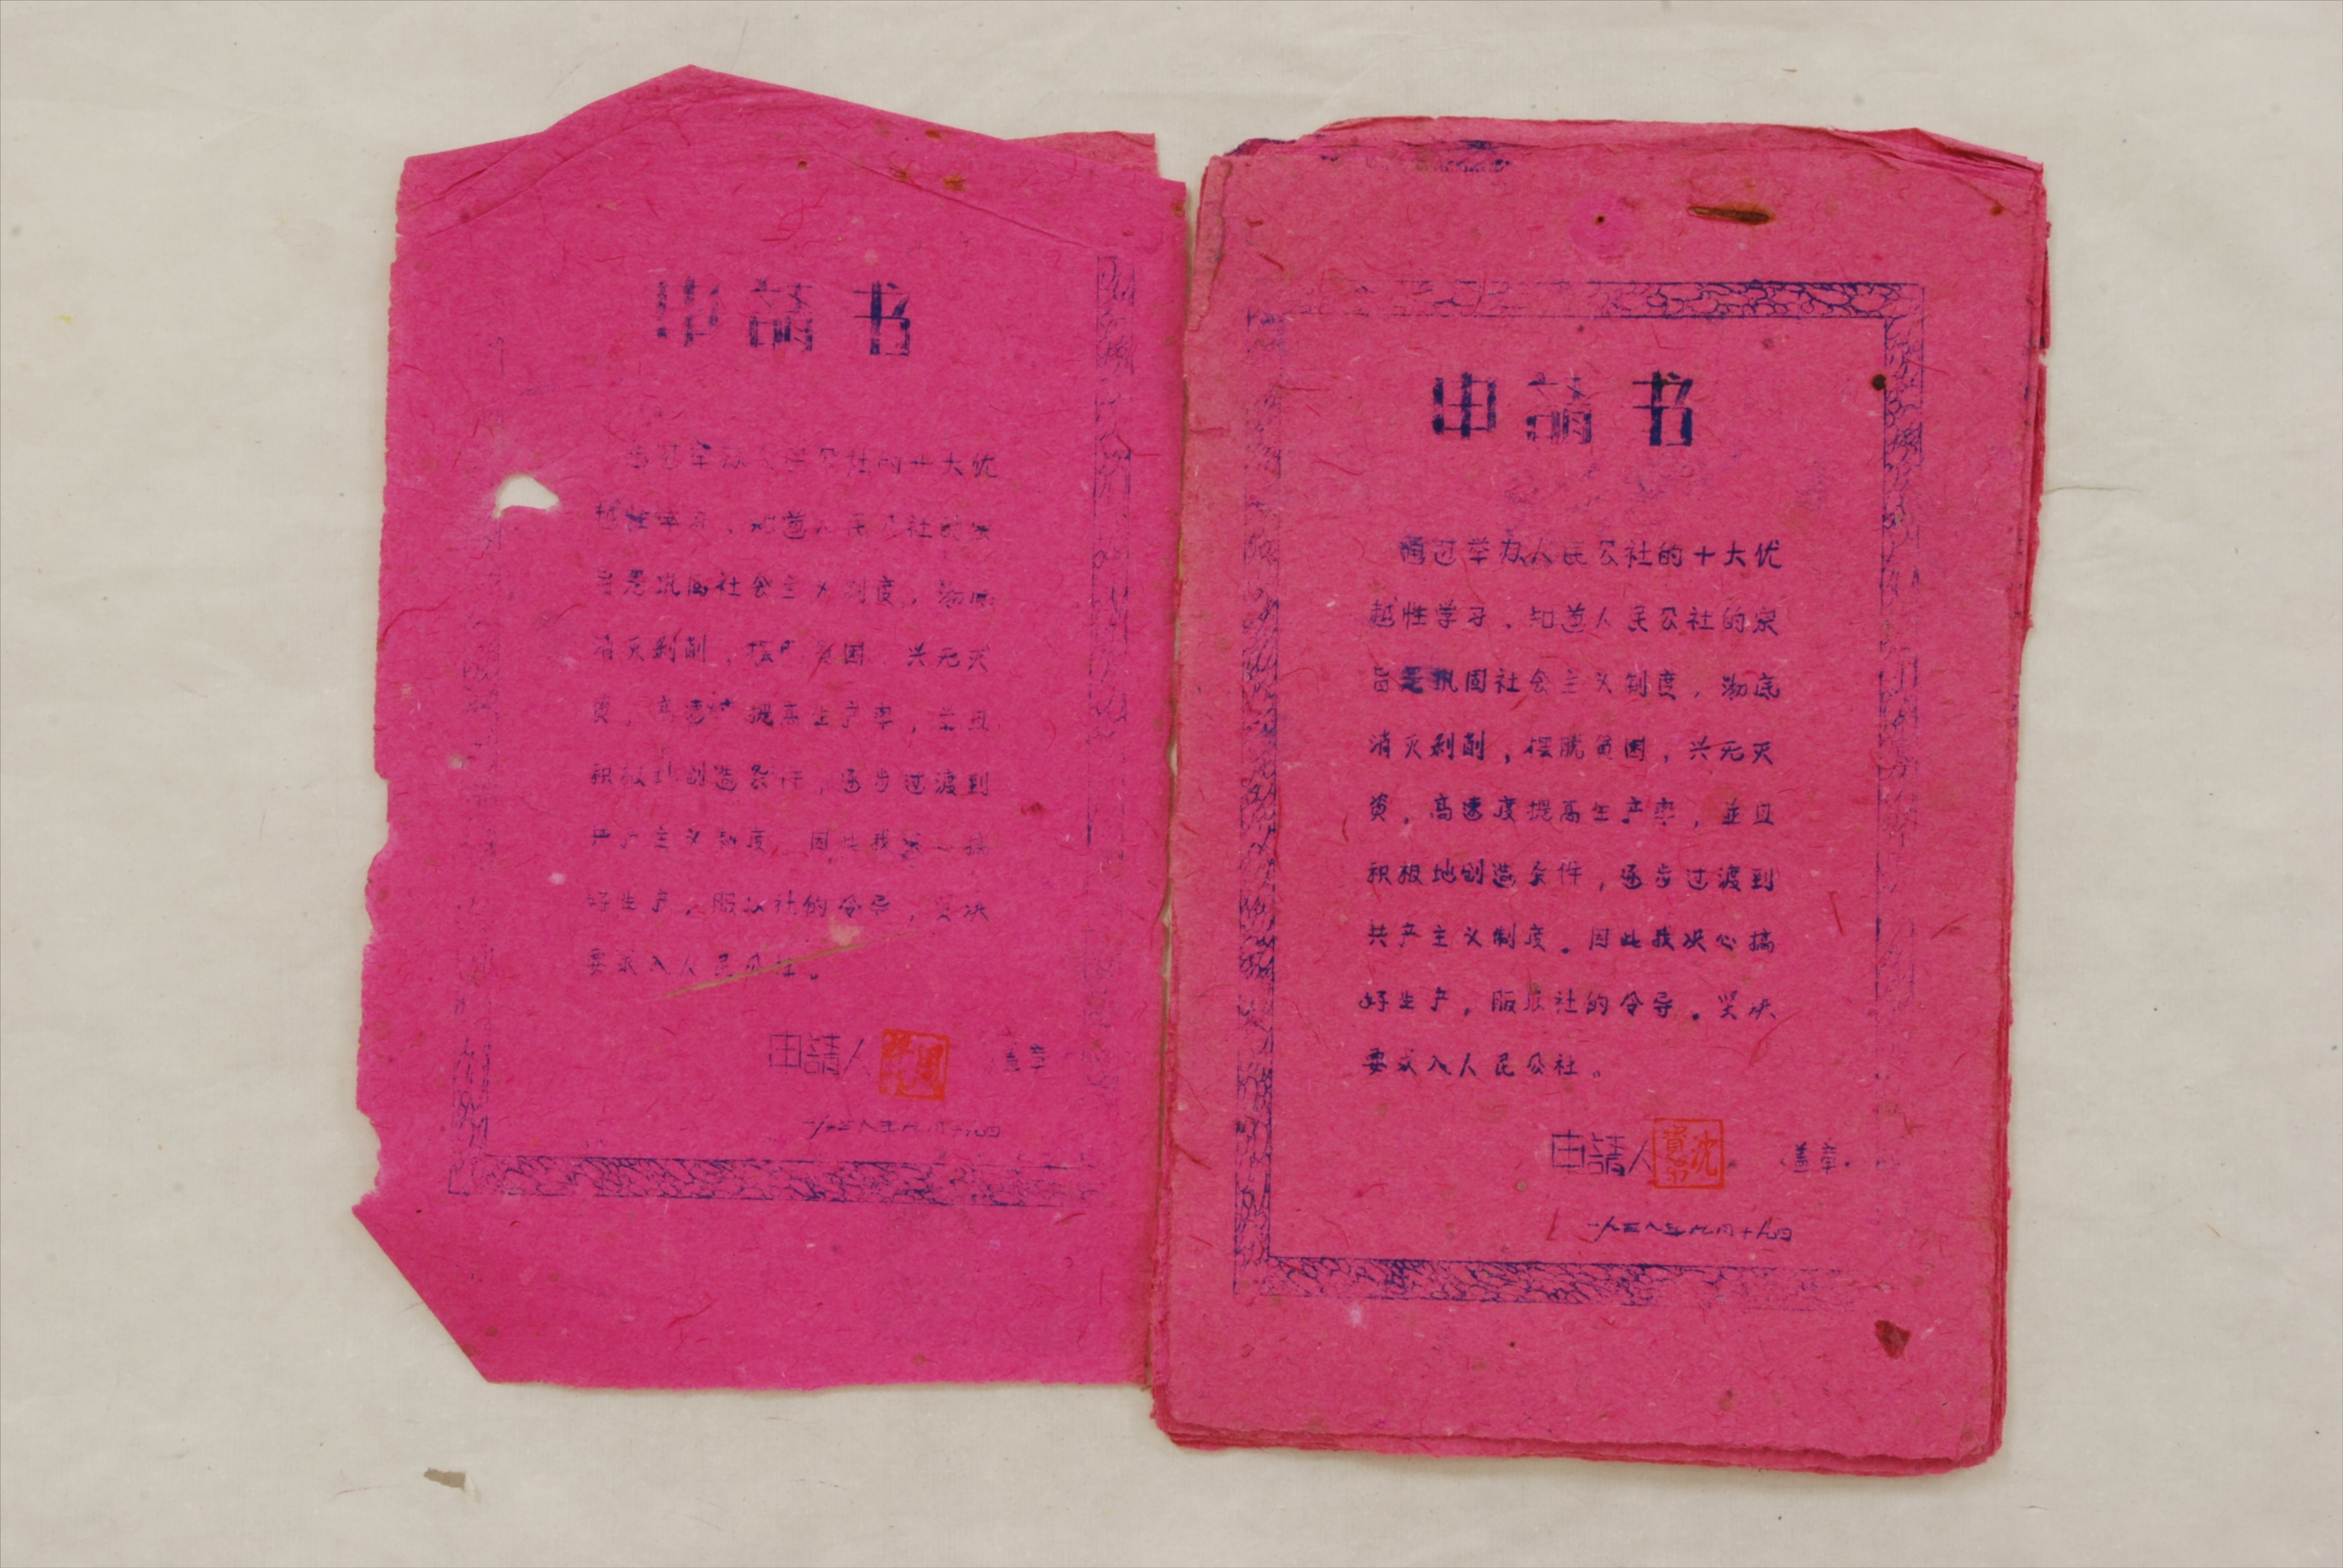 申請书
通过举办人民公社的十大优
越性学习，知道人民公社的宗
旨是巩固社会主义制度，澈底
消灭剥削，摆脱贫困，兴无灭
资，高速度提高生产率，並且
积极地创造条件，逐步过渡到
共产主义制度。因此我决心搞
好生产，服从社的令导，坚决
要求入人民公社。
申請人 盖章
一九五八年九月十九日
申請书
通过举办人民公社的十大优
越性学习，知道人民公社的宗
旨是巩固社会主义制度，澈底
消灭剥削，摆脱贫困，兴无灭
资，高速度提高生产率，並且
积极地创造条件，逐步过渡到
共产主义制度。因此我决心搞
好生产，服从社的令导。坚决
要求入人民公社。
申請人 沈 盖章
一九五八年九月十九日